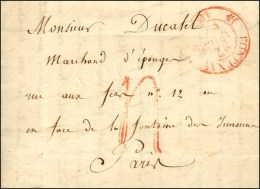 Monsieur Ducatel
Marchand d'éponge
rue aux fers n° 12 en
en face de la fontaine des Innocens
Paris